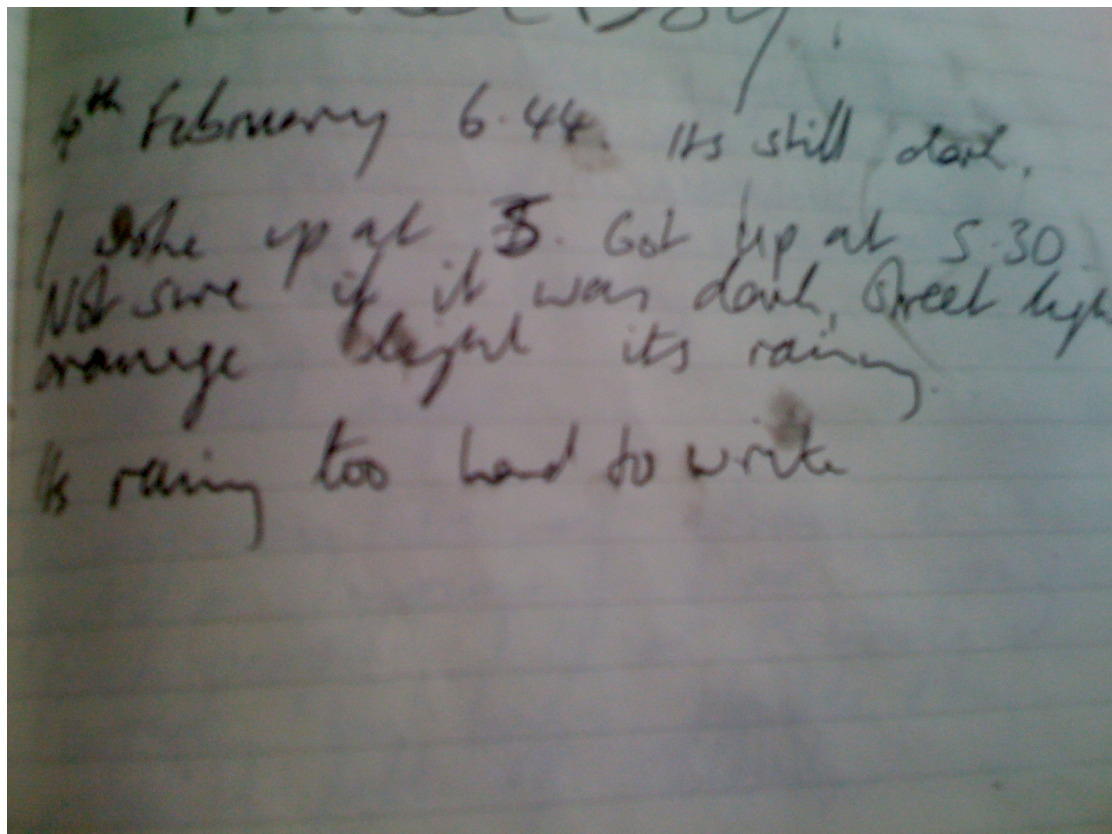 4th February 6.44. Its still dark.
I woke up at 5. Got up at 5.30
Not sure if it was dark, street
orange light its raining.
Its raining too hard to write